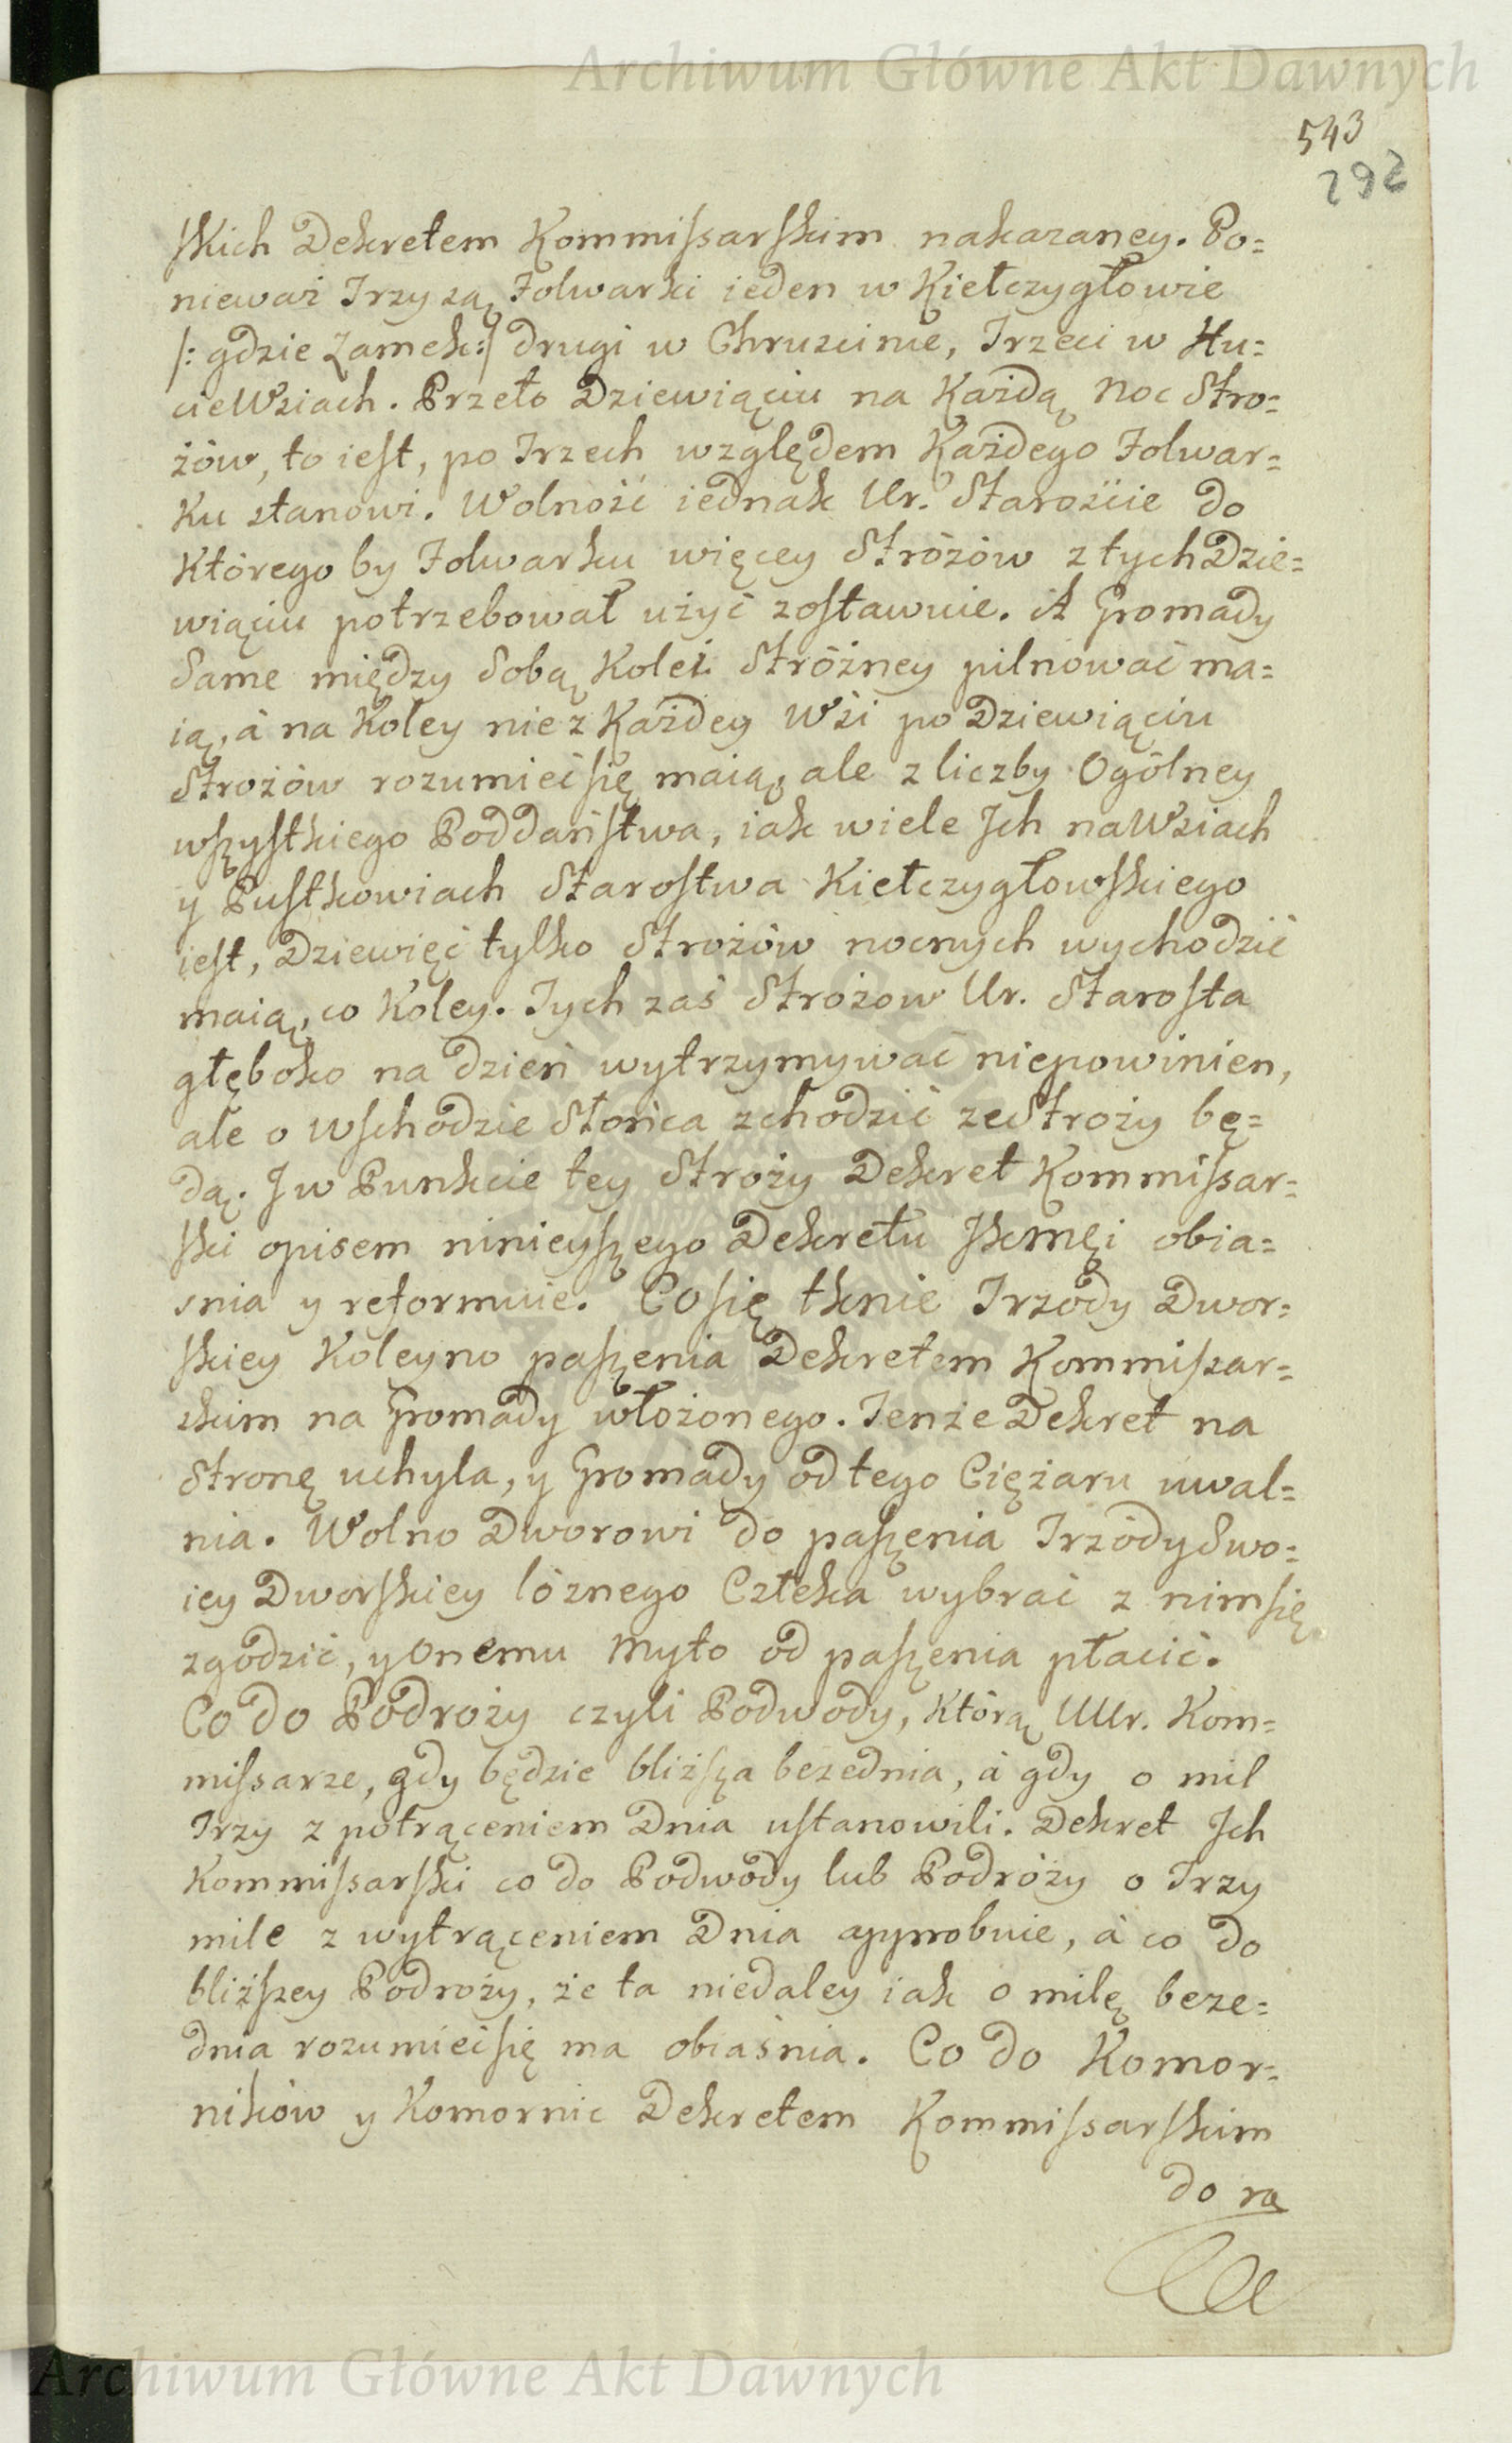 Archiwum Główne Akt Dawnych
543
292
skich Dekretem Kommissarskim nakazaney. Po=
nieważ Trzy są Folwarki ieden w Kiełczygłowie
/: gdzie Zamek:/ drugi w Chruscinie, Trzeci w Hu=
cie Wsiach. Przeto Dziewiąciu na Każdą Noc Stro=
żów, to iest, po Trzech względem Każdego Folwar=
ku stanowi. Wolność iednak Ur. Starościie do
Którego by Folwarku więcey Stróżów z tych Dzie=
wiąciu potrzebował użyć zostawuie. A Gromady
Same między Sobą Kolei Stróżney pilnować ma=
ią, à na Koley nie z Każdey Wsi po Dziewiąciu
Strożów rozumieć się maią, ale z liczby Ogólney
wszystkiego Poddaństwa, iak wiele Ich na Wsiach
y Pustkowiach Starostwa Kiełczygłowskiego
iest, Dziewięć tylko Strożów nocnych wychodzić
maią, co Koley. Tych zaś Strożow Ur. Starosta
głęboko na dzień wytrzymywać niepowinien,
ale o wschodzie Słońca zchodzić ze Stroży bę=
dą. I w Punkcie tey Stroży Dekret Kommissar=
ski opisem ninieyszego Dekretu Skmęi obia=
snia y reformuie. Co się tknie Trzody Dwor=
skiey Koleyno paszenia Dekretem Kommissar=
skim na Gromady włożonego. Tenże Dekret na
Stronę uchyla, y Gromady od tego Ciężaru uwal=
nia. Wolno Dworowi do paszenia Trzódy Swo=
iey Dworskiey lóznego Człeka wybrać z nim się
zgodzić, y Onemu Myto od paszenia płacić.
Co do Podroży czyli Podwody, którą UUr. Kom=
missarze, gdy będzie bliższa bezednia, à gdy o mil
Trzy z potrąceniem Dnia ustanowili. Dekret Ich
Kommissarski co do Podwody lub Podróży o Trzy
mile z wytrąceniem Dnia approbuie, à co do
bliższey Podroży, że ta niedaley iak o milę beze=
dnia rozumieć się ma obiaśnia. Co do Komor=
ników y Komornic Dekretem Kommissarskim
do ro
Archiwum Główne Akt Dawnych